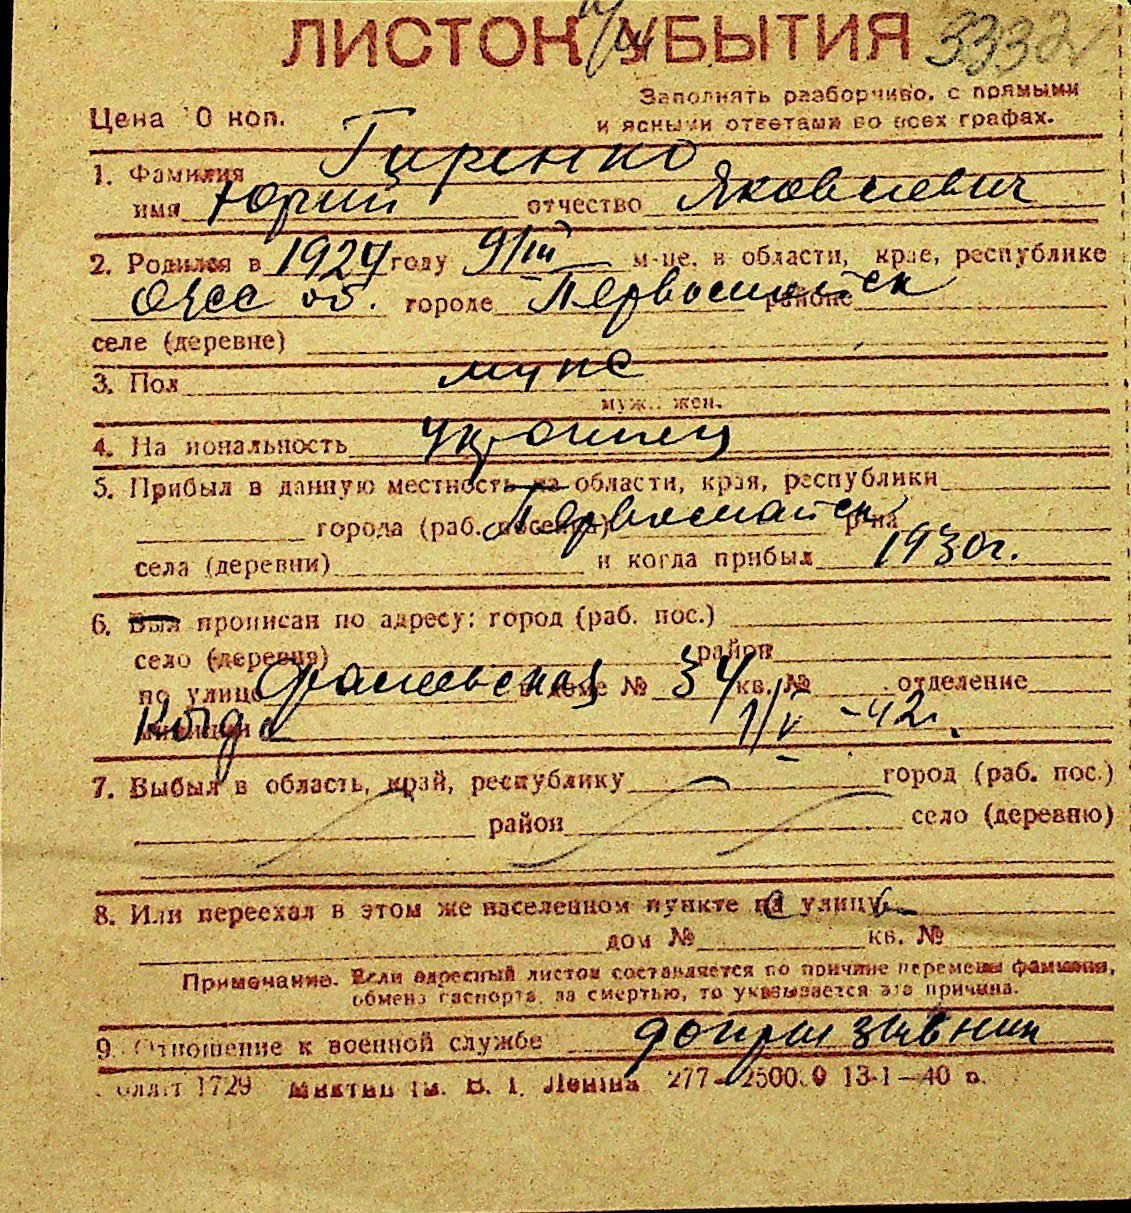 ЛИСТОК УБЫТИЯ 3332
Заполнять разборчиво, с прямыми
Цена 10 коп. и ясными ответами во всех графах.
1. Фамилия Гиренко
имя Юрий отчество Яковлевич
2. Родился в 1924 году 9/III м-це, в области, крае, республике
Одес об. городе Первомайск районе
селе (деревне)
3. Пол мужс
муж., жен.
4. Национальность Украинец
5. Прибыл в данную местность из области, края, республики
города (раб. поселка) Первомайск р-на
села (деревни) и когда прибыл 1930г.
6. Был прописан по адресу: город (раб. пос.)
село (деревня) район
по улице в доме № 34 кв. № отделение
милиции 1/V -42г.
7. Выбыл в область, край, республику город (раб. пос.)
район село (деревню)
8. Или переехал в этом же населенном пункте на улицу
дом № кв. №
Примечание. Если адресный листок составляется по причине перемены фамилии,
обмена паспорта, за смертью, то указывается эта причина.
9. Отношение к военной службе допризывник
1729 Ленина 277—2500.0 13-1—40 р.